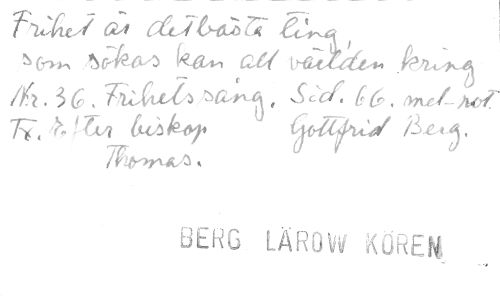 Frihet är det bästa ting,
som sökas kan all världen kring
Nr. 36. Frihetssång. Sid. 66. mel-not.
Tx. Efter biskop Gottfrid Berg.
Thomas.
BERG LÄROW KÖREN